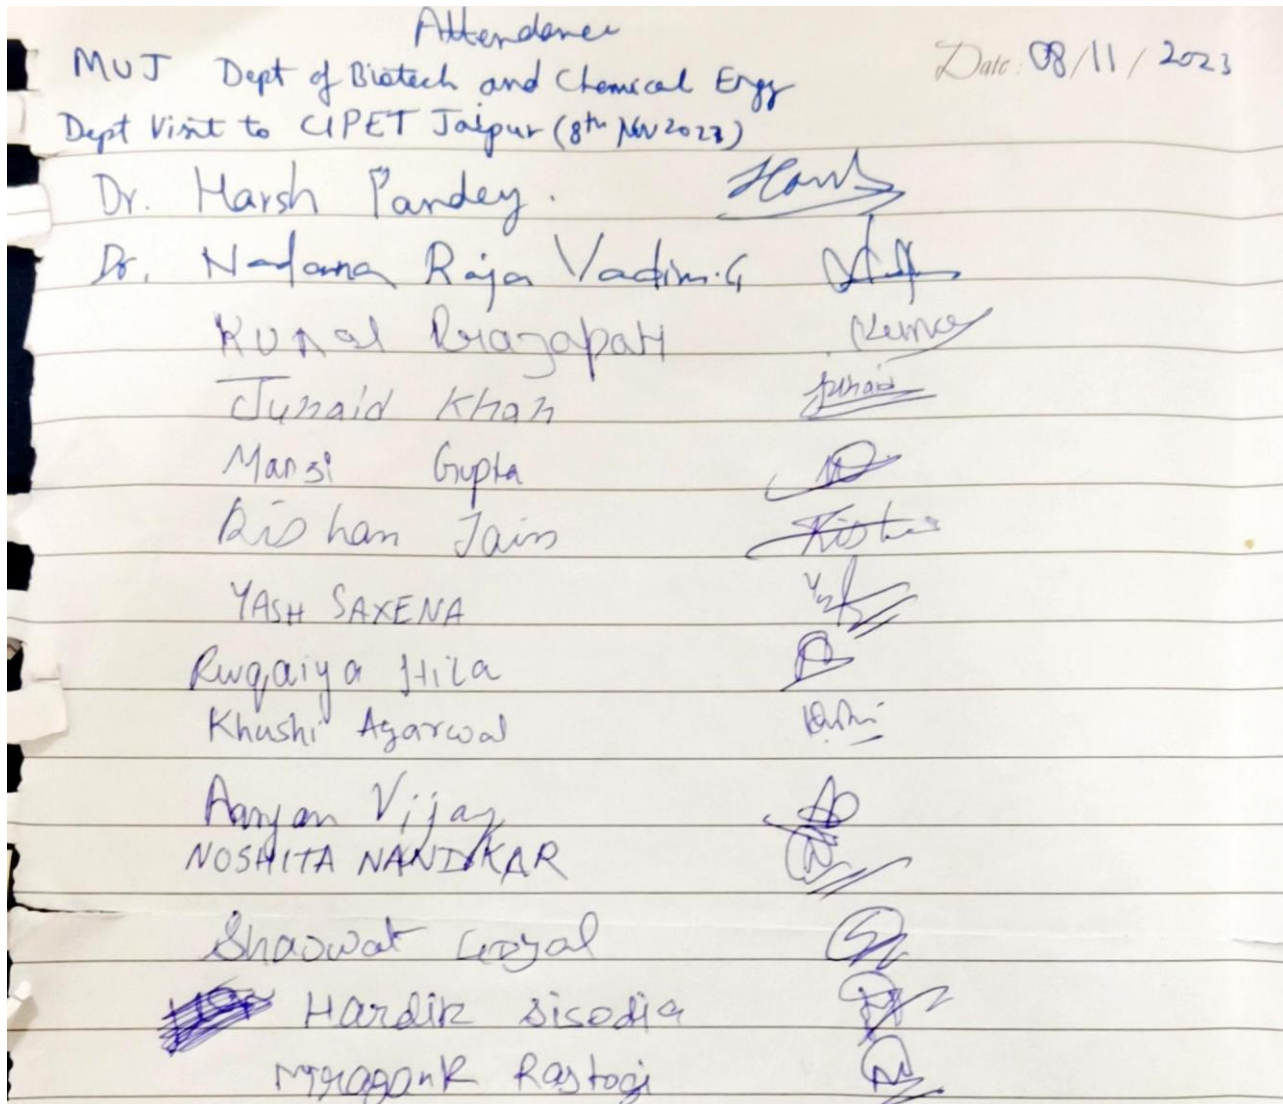 Attendance
Date: 08/11/2023
MUJ Dept of Biotech and Chemical Engg
Dept Visit to CIPET Jaipur (8th Nov 2023)
Dr. Harsh Pandey. Harsh
Dr. Nadana Raja Vadivu.G
Kunal Prajapati Kunal
Junaid Khan Junaid
Mansi Gupta
Rishan Jain
YASH SAXENA Yash
Ruqaiya Hila
Khushi Agarwal Khushi
Aaryan Vijay
NOSHITA NANDKAR
Shaswat Goyal
Hardik Sisodia
Mragank Rastogi